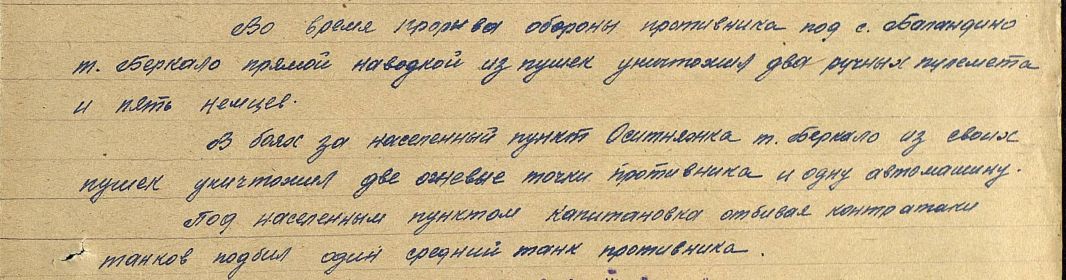 Во время прорыва обороны противника под с. Баландино
т. Беркало прямой наводкой из пушек уничтожил два ручных пулемета
и пять немцев.
В боях за населенный пункт Оситняжка т. Беркало из своих
пушек уничтожил две огневые точки противника и одну автомашину.
Под населенным пунктом Капитановка отбивая контратаки
танков подбил один средний танк противника.